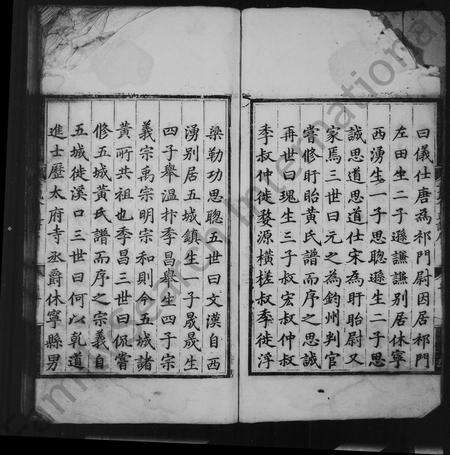 曰儀仕唐為祁門尉因居祁門
左田生二子遜謙謙別居休寧
西湧生一子思聰遜生二子思
誠思道思道仕宋為盱眙尉又
家焉三世曰元之為鈞州判官
嘗修盱眙黃氏譜而序之思誠
再世曰瑰生三子叔宏叔仲叔
季叔仲徙婺源橫槎叔季徙浮
梁勒功思聰五世曰文漢自西
湧別居五城鎮生一子晟晟生
四子舉溫抃季昌舉生四子宗
義宗禹宗明宗和則今五城諸
黃所共祖也季昌三世曰侃嘗
修五城黃氏譜而序之宗義自
五城徙漢口三世曰何以乹道
進士歷太府寺丞爵休寧縣男
FamilySearch International